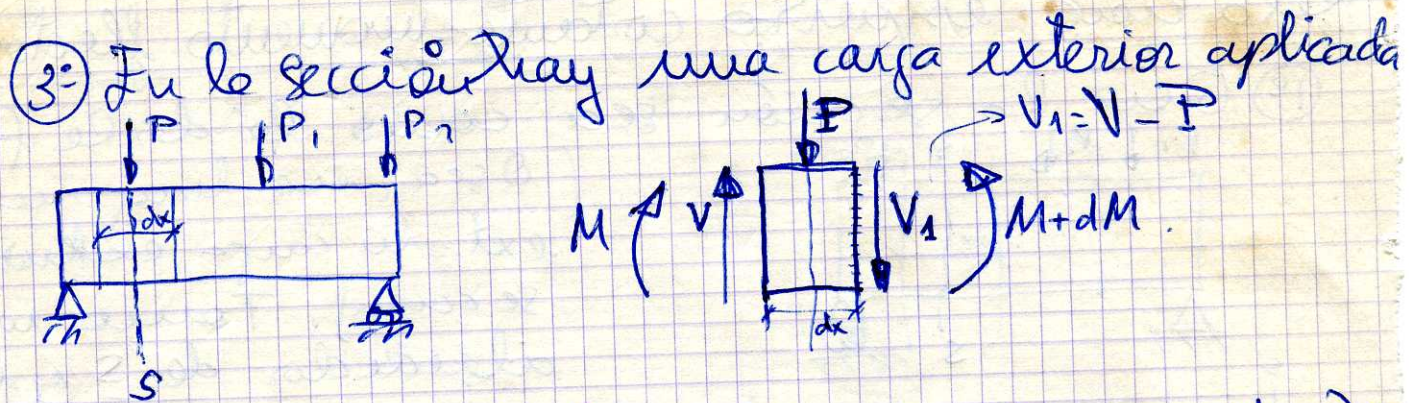 3º) En la sección hay una carga exterior aplicada
P P₁ P₂ P V₁=V-P
dx M V V₁ M+dM.
dx
S